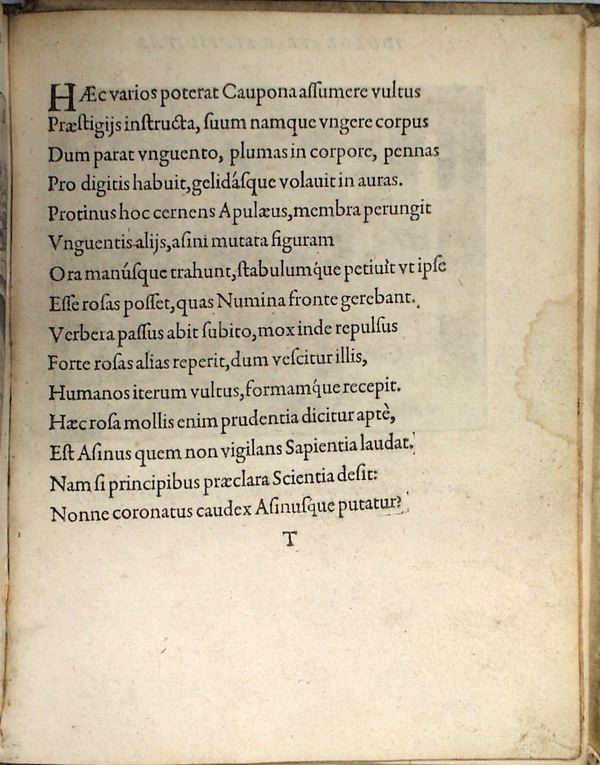 HÆc varios poterat Caupona aſſumere vultus
Præſtigijs inſtructa, ſuum namque vngere corpus
Dum parat vnguento, plumas in corpore, pennas
Pro digitis habuit, gelidáſque volauit in auras.
Protinus hoc cernens Apulæus, membra perungit
Vnguentis alijs, aſini mutata figuram
Ora manúſque trahunt, ſtabulumq́ue petiuit vt ipſe
Eſſe roſas poſſet, quas Numina fronte gerebant.
Verbera paſſus abit ſubito, mox inde repulſus
Forte roſas alias reperit, dum veſcitur illis,
Humanos iterum vultus, formamq́ue recepit.
Hæc roſa mollis enim prudentia dicitur aptè,
Eſt Aſinus quem non vigilans Sapientia laudat.
Nam ſi principibus præclara Scientia deſit:
Nonne coronatus caudex Aſinuſque putatur?
T